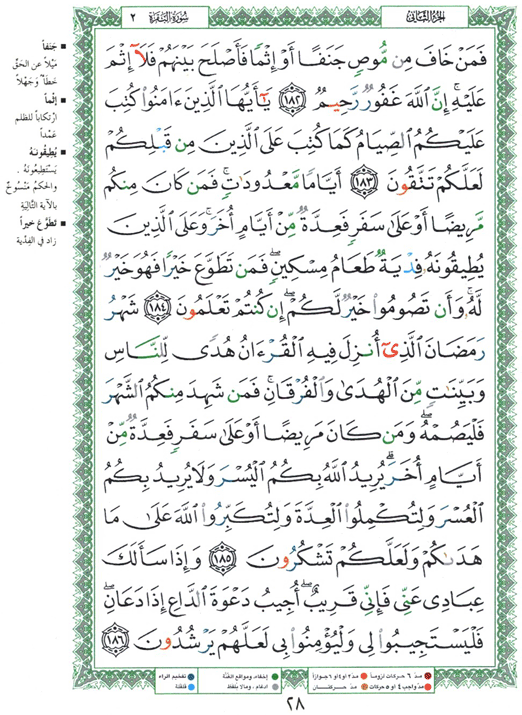 الجزء الثاني
سورة البقرة ٢
فَمَنْ خَافَ مِن مُّوصٍ جَنَفًا أَوْ إِثْمًا فَأَصْلَحَ بَيْنَهُمْ فَلَآ إِثْمَ
عَلَيْهِ ۚ إِنَّ ٱللَّهَ غَفُورٌ رَّحِيمٌ ١٨٢ يَـٰٓأَيُّهَا ٱلَّذِينَ ءَامَنُوا۟ كُتِبَ
عَلَيْكُمُ ٱلصِّيَامُ كَمَا كُتِبَ عَلَى ٱلَّذِينَ مِن قَبْلِكُمْ
لَعَلَّكُمْ تَتَّقُونَ ١٨٣ أَيَّامًا مَّعْدُودَٰتٍ ۚ فَمَن كَانَ مِنكُم
مَّرِيضًا أَوْ عَلَىٰ سَفَرٍ فَعِدَّةٌ مِّنْ أَيَّامٍ أُخَرَ ۚ وَعَلَى ٱلَّذِينَ
يُطِيقُونَهُۥ فِدْيَةٌ طَعَامُ مِسْكِينٍ ۖ فَمَن تَطَوَّعَ خَيْرًا فَهُوَ خَيْرٌ
لَّهُۥ ۚ وَأَن تَصُومُوا۟ خَيْرٌ لَّكُمْ ۖ إِن كُنتُمْ تَعْلَمُونَ ١٨٤ شَهْرُ
رَمَضَانَ ٱلَّذِىٓ أُنزِلَ فِيهِ ٱلْقُرْءَانُ هُدًى لِّلنَّاسِ
وَبَيِّنَـٰتٍ مِّنَ ٱلْهُدَىٰ وَٱلْفُرْقَانِ ۚ فَمَن شَهِدَ مِنكُمُ ٱلشَّهْرَ
فَلْيَصُمْهُ ۖ وَمَن كَانَ مَرِيضًا أَوْ عَلَىٰ سَفَرٍ فَعِدَّةٌ مِّنْ
أَيَّامٍ أُخَرَ ۗ يُرِيدُ ٱللَّهُ بِكُمُ ٱلْيُسْرَ وَلَا يُرِيدُ بِكُمُ
ٱلْعُسْرَ وَلِتُكْمِلُوا۟ ٱلْعِدَّةَ وَلِتُكَبِّرُوا۟ ٱللَّهَ عَلَىٰ مَا
هَدَىٰكُمْ وَلَعَلَّكُمْ تَشْكُرُونَ ١٨٥ وَإِذَا سَأَلَكَ
عِبَادِى عَنِّى فَإِنِّى قَرِيبٌ ۖ أُجِيبُ دَعْوَةَ ٱلدَّاعِ إِذَا دَعَانِ ۖ
فَلْيَسْتَجِيبُوا۟ لِى وَلْيُؤْمِنُوا۟ بِى لَعَلَّهُمْ يَرْشُدُونَ ١٨٦
جَنَفاً
مَيْلاً عن الحقّ
خطأً وجَهْلاً
إثْماً
ارتكاباً للظلم
عَمْداً
يُطِيقُونَهُ
يَسْتَطِيعُونَهُ .
والحكمُ مَنْسُوخٌ
بالآية التَّالِيَةِ
تَطَوَّعَ خيراً
زاد في الفِدْيَة
مدّ ٦ حركات لزوماً مدّ٢ أو٤ أو ٦ جوازاً
مدّ واجب ٤ أو ٥ حركات مدّ حركتان
إخفاء، ومواقع الغُنَّة
ادغام ، ومالا يلفظ
تفخيم الراء
قلقلة
٢٨